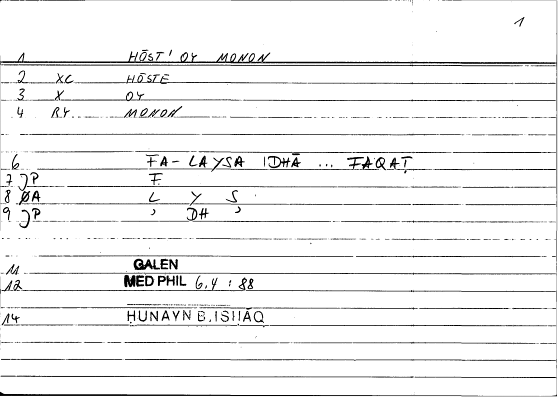 1
1 HŌST' OY MONON
2 XC HŌSTE
3 X OY
4 RY MONON
6 FA-LAYSA IDHĀ ... FAQAṬ
7 JP F
8 ØA L Y S
9 JP ' DH '
11 GALEN
12 MED PHIL 6,4 : 88
14 ḤUNAYN B. ISḤĀQ